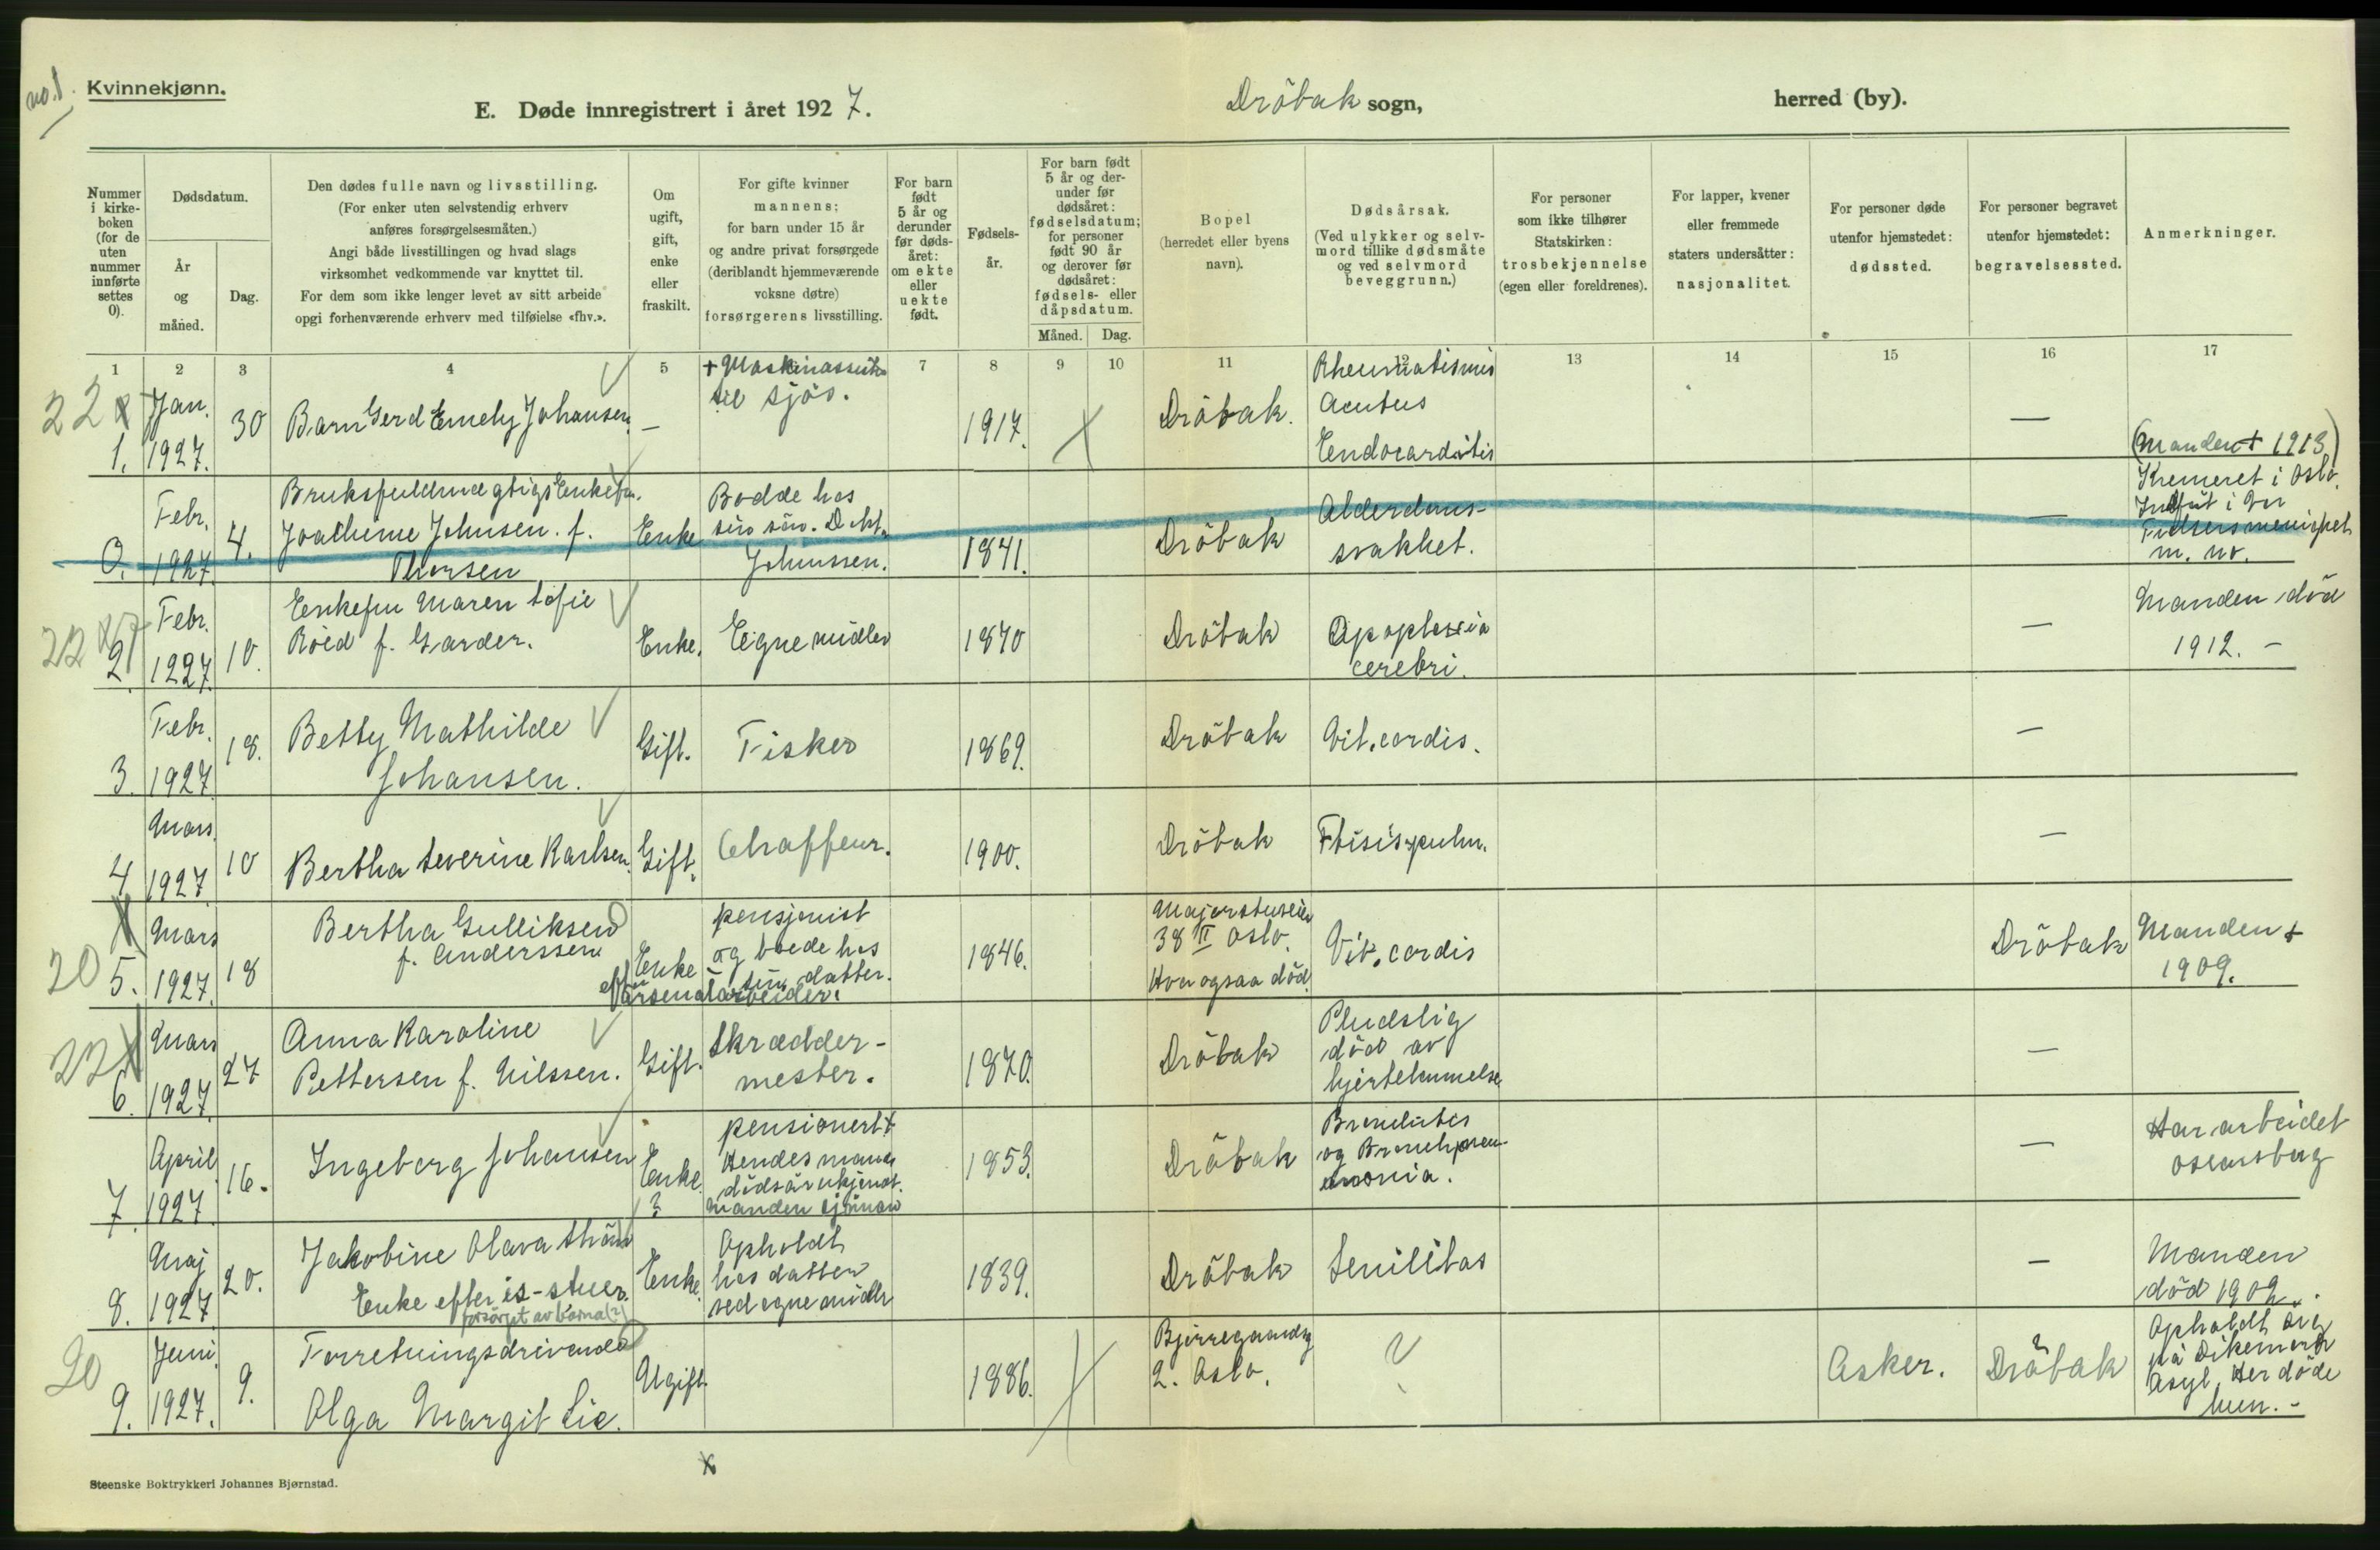 no. 1.
Kvinnekjønn.
E. Døde innregistrert i året 1927.
Dröbak sogn,
herred (by).
Nummer i kirke-boken (for de uten nummer innførte settes 0).
Dødsdatum.
År og måned.
Dag.
Den dødes fulle navn og livsstilling.
(For enker uten selvstendig erhverv
anføres forsørgelsesmåten.)
Angi både livsstillingen og hvad slags
virksomhet vedkommende var knyttet til.
For dem som ikke lenger levet av sitt arbeide
opgi forhenværende erhverv med tilføielse «fhv.».
Om ugift, gift, enke eller fraskilt.
For gifte kvinner
mannens;
for barn under 15 år
og andre privat forsørgede
(deriblandt hjemmeværende
voksne døtre)
forsørgerens livsstilling.
For barn født 5 år og derunder før døds-året: om ekte eller uekte født.
Fødsels-år.
For barn født 5 år og der-under før dødsåret: fødselsdatum; for personer født 90 år og derover før dødsåret: fødsels- eller dåpsdatum.
Måned. Dag.
Bopel
(herredet eller byens
navn).
Dødsårsak.
(Ved ulykker og selv-
mord tillike dødsmåte
og ved selvmord
beveggrunn.)
For personer
som ikke tilhører
Statskirken:
trosbekjennelse
(egen eller foreldrenes).
For lapper, kvener
eller fremmede
staters undersåtter:
nasjonalitet.
For personer døde
utenfor hjemstedet:
dødssted.
For personer begravet
utenfor hjemstedet:
begravelsessted.
Anmerkninger.
1 2 3 4 5 7 8 9 10 11 12 13 14 15 16 17
22
1. Jan. 1927. 30 Barn Gerd Emely Johansen. — til sjös. 1917. Dröbak. Rheumatismus
Acutus
Endocarditis —
0. Febr. 1927. 4. Joachime Johnsen. f.
Thorsen Enke Bodde hos
sin sön. 1841. Dröbak Alderdoms-
svakhet. — (Manden + 1913)
Kremeret i Oslo.
22
2. Febr. 1927. 10. Enkefru Maren Sofie
Röed f. Garder. Enke. Eigne midler 1870 Dröbak Apoplexia
cerebri. — Manden död
1912. –
3. Febr. 1927. 18. Betty Mathilde
Johansen. Gift. Fisker 1869. Dröbak Vit. cordis. —
4 Mars 1927 10 Bertha Severine Karlsen. Gift. Chaffeur. 1900. Dröbak Ftisis pulm. —
20
5. Mars 1927. 18 Bertha Gulliksen
f. Anderssen Enke pensjonist
og boede hos
sin datter.
arsenalarbeider. 1846. 38 II Oslo.
Hvor ogsaa död. Vit. cordis Dröbak Manden +
1909.
22
6. Mars 1927. 27 Anna Karoline
Pettersen f. Nilssen. Gift. Skrædder-
mester. 1870. Dröbak Pludslig
död av
hjertelammelse —
7. April 1927. 16. Ingeborg Johansen Enke. ? pensionert
Hendes mands
dödsår ukjendt. 1853. Dröbak — Har arbeidet
Oscarsborg
8. Maj 1927. 20. Jakobine Olava
Enke efter
forsörget av barna (?) Enke. Opholdt
hos datter
ved egne midler 1839. Dröbak Senilitas – Manden
död 1902.
20
9. Juni. 1927. 9. Forretningsdrivende
Olga Margit Lie. Ugift. 1886. 2. Oslo. ? Asker. Dröbak Opholdt sig
på Dikemark
Asyl. Her döde
hun. –
Steenske Boktrykkeri Johannes Bjørnstad.